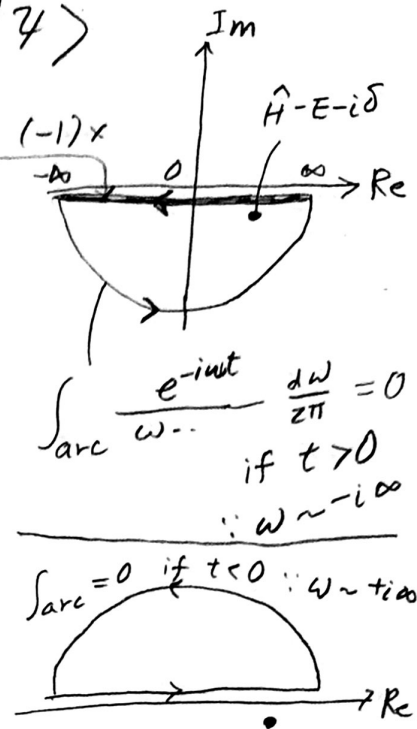 ψ>
Im
Ĥ-E-iδ
(-1)×
-∞ 0 ∞ Re
∫arc e^-iωt / ω-- dω/2π = 0
if t>0
∵ ω ~ -i∞
∫arc = 0 if t<0 ∵ ω ~ +i∞
Re